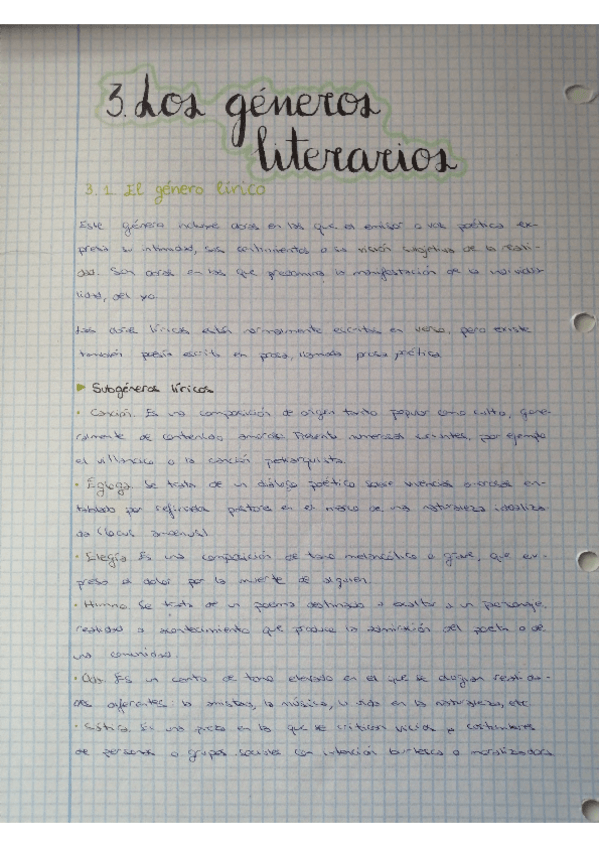 3. Los géneros
literarios
3.1. El género lírico
Este género incluye obras en las que el emisor o voz poética ex-
presa su intimidad, sus sentimientos o su visión subjetiva de la reali-
dad. Son obras en las que predomina la manifestación de la individua-
lidad, del yo.
Las obras líricas están normalmente escritas en verso, pero existe
también poesía escrita en prosa, llamada prosa poética.
Subgéneros líricos
· Canción. Es una composición de origen tanto popular como culto, gene-
ralmente de contenido amoroso. Presenta numerosas variantes, por ejemplo
el villancico o la canción petrarquista.
· Égloga. Se trata de un diálogo poético sobre vivencias amorosas en-
tablado por refinados pastores en el marco de una naturaleza idealiza-
da (locus amoenus)
· Elegía. Es una composición de tono melancólico o grave, que ex-
presa el dolor por la muerte de alguien.
· Himno. Se trata de un poema destinado a exaltar a un personaje,
realidad o acontecimiento que produce la admiración del poeta o de
una comunidad.
· Oda. Es un canto de tono elevado en el que se elogian realida-
des diferentes: la amistad, la música, la vida en la naturaleza, etc.
· Sátira. Es una pieza en la que se critican vicios y costumbres
de personas o grupos sociales con intención burlesca o moralizadora.